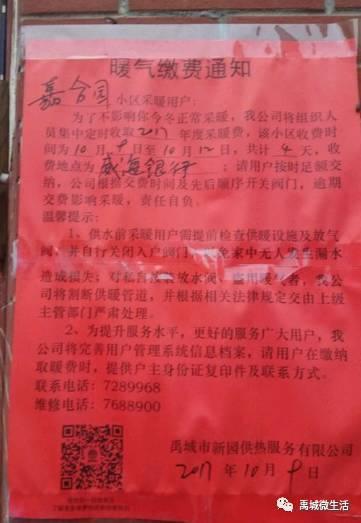 暖气缴费通知
嘉合园小区采暖用户:
为了不影响你今冬正常采暖，我公司将组织人
员集中定时收取2017年度采暖费，该小区收费时
间为10月9日至10月12日，共计4天，收
费地点为威海银行；请用户按时足额交
纳，公司根据交费时间及先后顺序开关阀门，逾期
交费影响采暖，责任自负。
温馨提示：
1、供水前采暖用户需提前检查供暖设施及放气
阀、并自行关闭入户阀门，避免家中无人发生漏水
造成损失；对私自安装放水阀、盗用暖气者，我公
司将割断供暖管道，并根据相关法律规定交由上级
主管部门严肃处理。
2、为提升服务水平，更好的服务广大用户，我
公司将完善用户管理系统信息档案，请用户在缴纳
取暖费时，提供户主身份证复印件及联系方式。
联系电话：7289968
维修电话：7688900
禹城市新园供热服务有限公司
2017年10月9日
禹城微生活